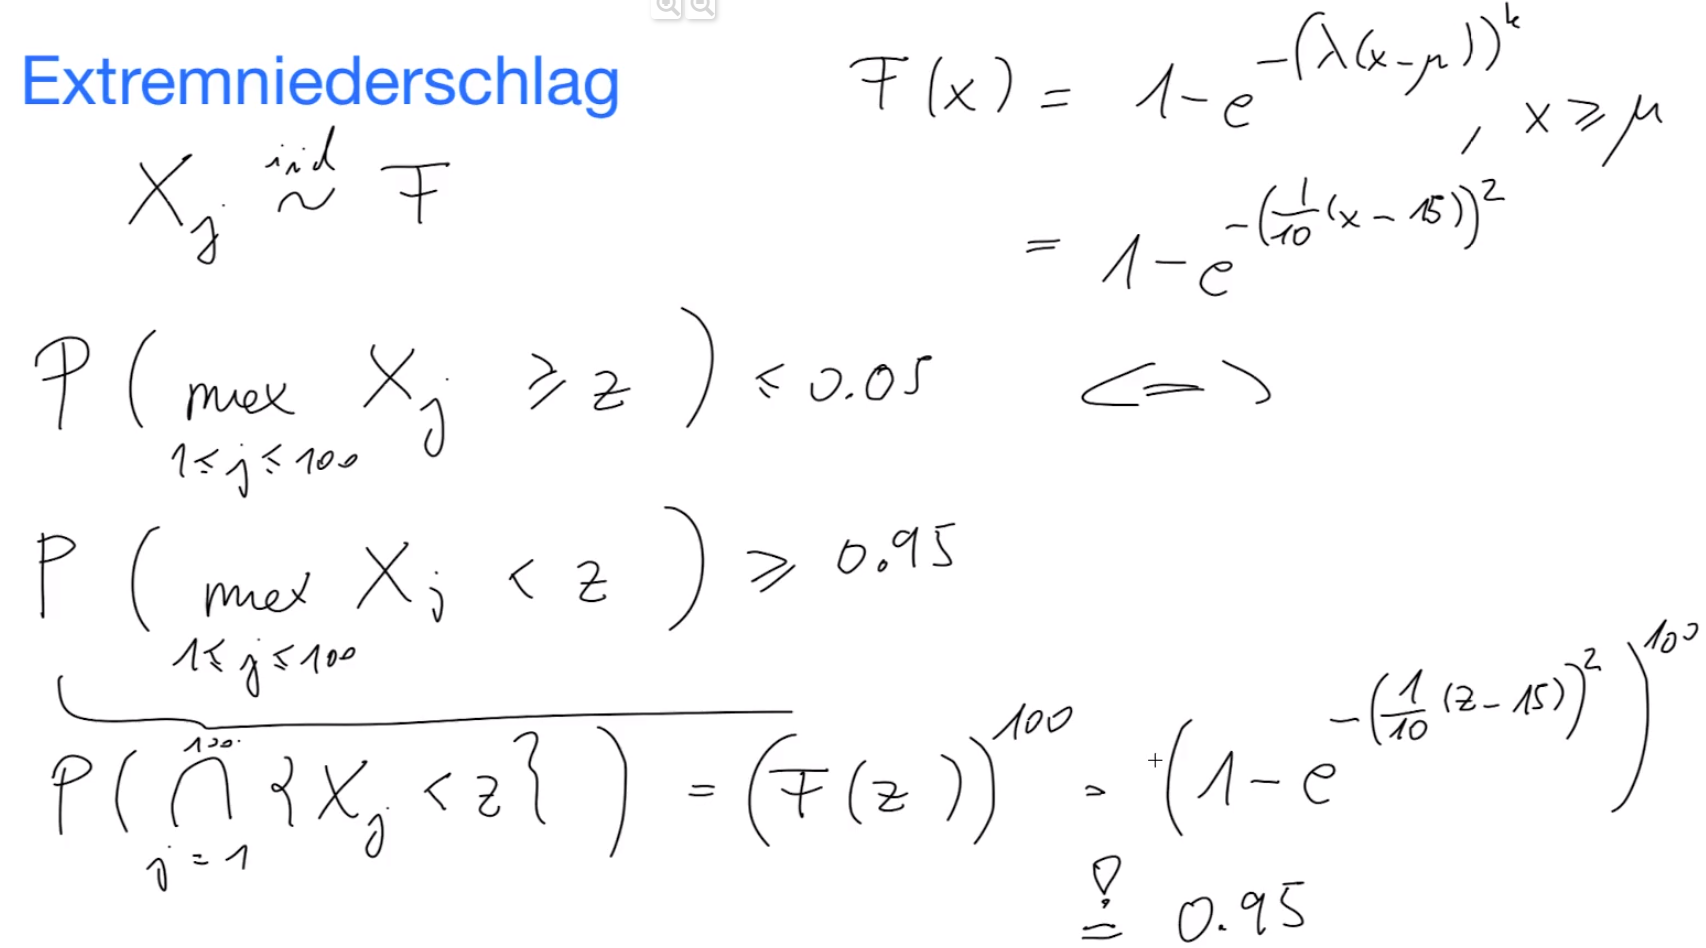 Extremniederschlag
F(x) = 1 - e^{-(λ(x-μ))^k}, x ≥ μ
X_j \overset{iid}{\sim} F
= 1 - e^{-(\frac{1}{10}(x-15))^2}
P( max_{1≤j≤100} X_j ≥ z ) ≤ 0.05 <=>
P( max_{1≤j≤100} X_j < z ) ≥ 0.95
P( ⋂_{j=1}^{100} {X_j < z} ) = (F(z))^{100} = (1 - e^{-(\frac{1}{10}(z-15))^2})^{100}
\overset{!}{=} 0.95